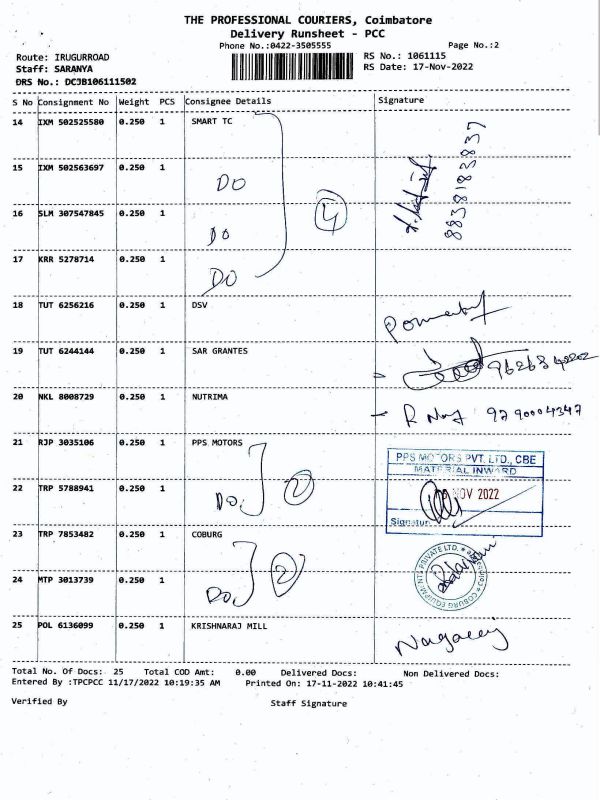 THE PROFESSIONAL COURIERS, Coimbatore
Delivery Runsheet - PCC
Phone No.:0422-3505555
Page No.:2
Route: IRUGURROAD
RS No.: 1061115
Staff: SARANYA
RS Date: 17-Nov-2022
DRS No.: DCJB106111502
S No Consignment No Weight PCS Consignee Details Signature
14 IXM 502525580 0.250 1 SMART TC
8838183837
15 IXM 502563697 0.250 1
DO
16 SLM 307547845 0.250 1
4
DO
17 KRR 5278714 0.250 1
DO
18 TUT 6256216 0.250 1 DSV
19 TUT 6244144 0.250 1 SAR GRANTES
20 NKL 8008729 0.250 1 NUTRIMA
9790004347
21 RJP 3035106 0.250 1 PPS MOTORS
PPS MOTORS PVT. LTD., CBE
MATERIAL INWARD
22 TRP 5788941 0.250 1
DO. 2
NOV 2022
Signatur
23 TRP 7853482 0.250 1 COBURG
24 MTP 3013739 0.250 1
DO. 2
COBURG EQUIPMENTS PRIVATE LTD.
25 POL 6136099 0.250 1 KRISHNARAJ MILL
Total No. Of Docs: 25 Total COD Amt: 0.00 Delivered Docs: Non Delivered Docs:
Entered By :TPCPCC 11/17/2022 10:19:35 AM Printed On: 17-11-2022 10:41:45
Verified By Staff Signature